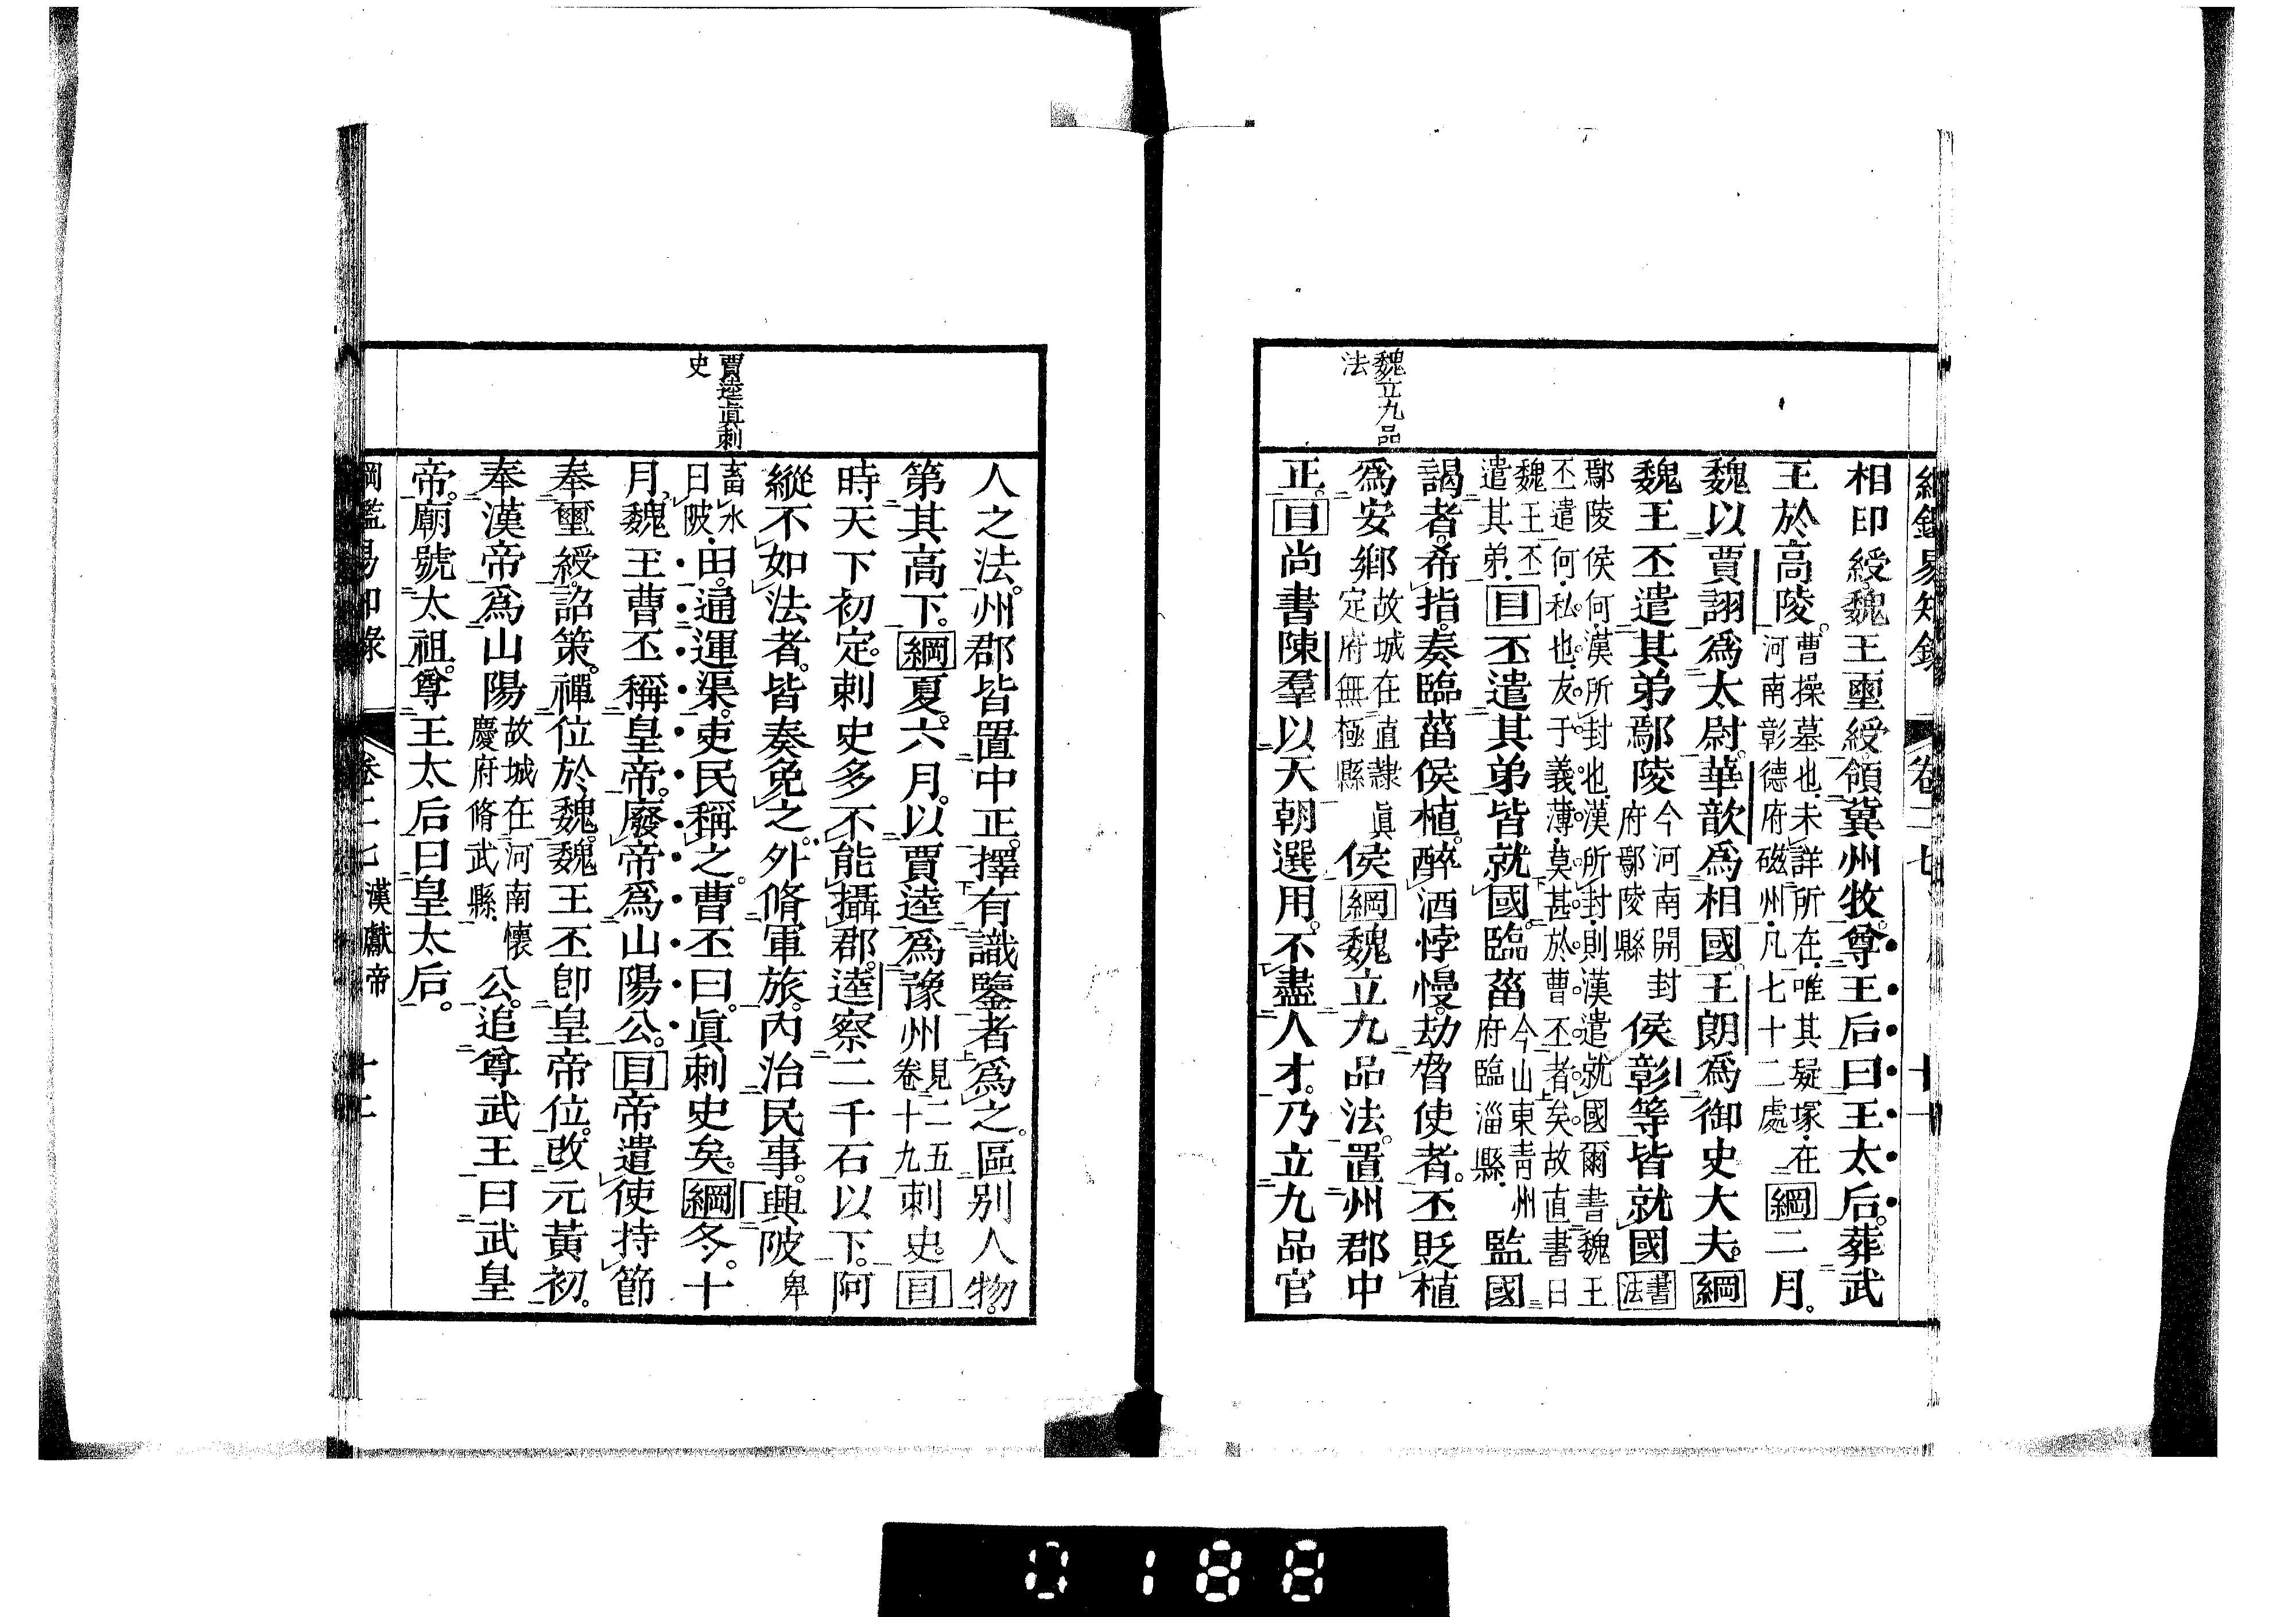 綱鑑易知錄 卷二七 十一
魏立九品
法
相印綬。魏王璽綬。領冀州牧。尊王后曰王太后。葬武
王於高陵。曹操墓也。未詳所在。唯其疑塚。在河南彰德府磁州。凡七十二處 綱二月。
魏以賈詡爲太尉。華歆爲相國。王朗爲御史大夫。綱
魏王丕遣其弟鄢陵今河南開封府鄢陵縣侯彰等皆就國書法
鄢陵侯何。漢所封也。漢所封。則漢遣就國爾。書魏王
丕遣何。私也。友于義薄。莫甚於曹丕者矣。故直書曰
魏王丕遣其弟。目丕遣其弟皆就國。臨菑今山東青州府臨淄縣。監國
謁者。希指。奏臨菑侯植。醉酒悖慢。劫脅使者。丕貶植
爲安鄉故城在直隸眞定府無極縣侯綱魏立九品法。置州郡中
正。目尚書陳羣以天朝選用。不盡人才。乃立九品官
人之法。州郡皆置中正。擇有識鑒者爲之。區別人物。
第其高下。綱夏。六月。以賈逵爲豫州見二五卷十九刺史。目
時天下初定。刺史多不能攝郡。逵察二千石以下。阿
縱不如法者。皆奏免之。外脩軍旅。內治民事。興陂卑
畜水曰陂。田。通運渠。吏民稱之。曹丕曰。眞刺史矣。綱冬。十
月。魏王曹丕稱皇帝。廢帝爲山陽公。目帝遣使持節
奉璽綬。詔策。禪位於魏。魏王丕卽皇帝位。改元黃初。
奉漢帝爲山陽故城在河南懷慶府脩武縣。公。追尊武王曰武皇
帝。廟號太祖。尊王太后曰皇太后。
賈逵眞刺
史
綱鑑易知錄 卷二七 漢獻帝 十二
0188